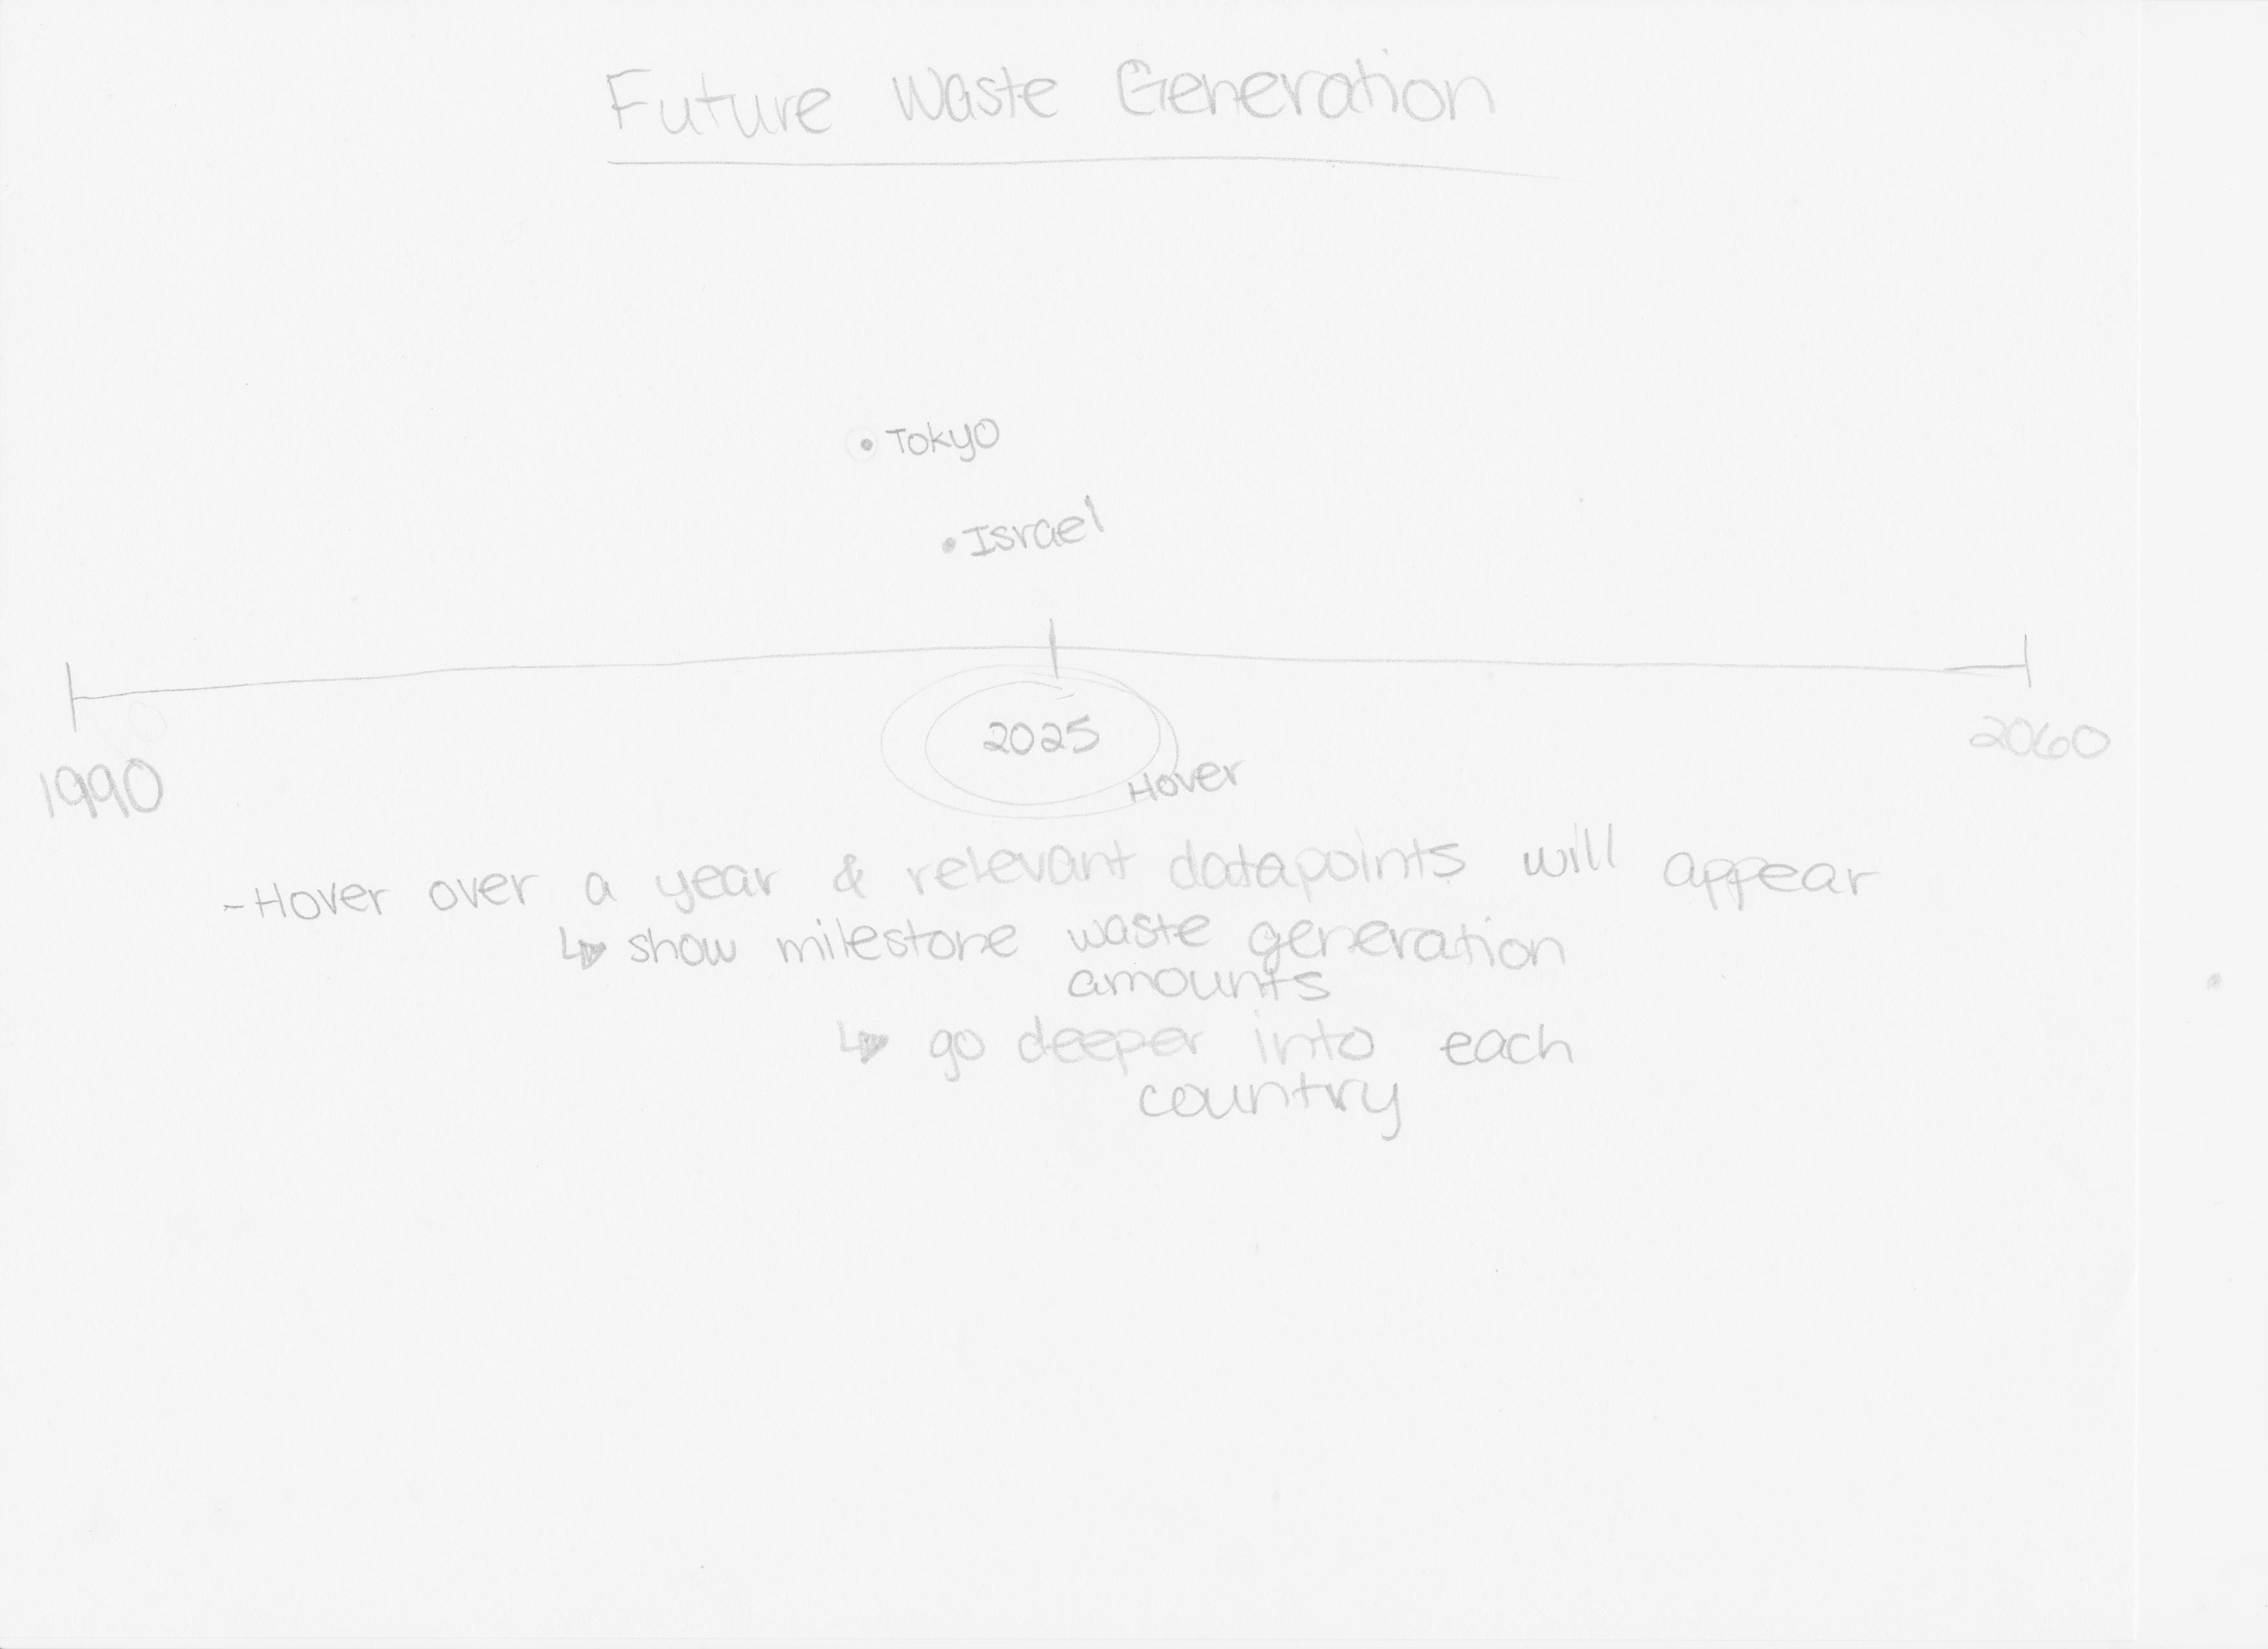 Future Waste Generation
• Tokyo
• Israel
1990
2025
2060
Hover
- Hover over a year & relevant datapoints will appear
↳ show milestone waste generation
amounts
↳ go deeper into each
country